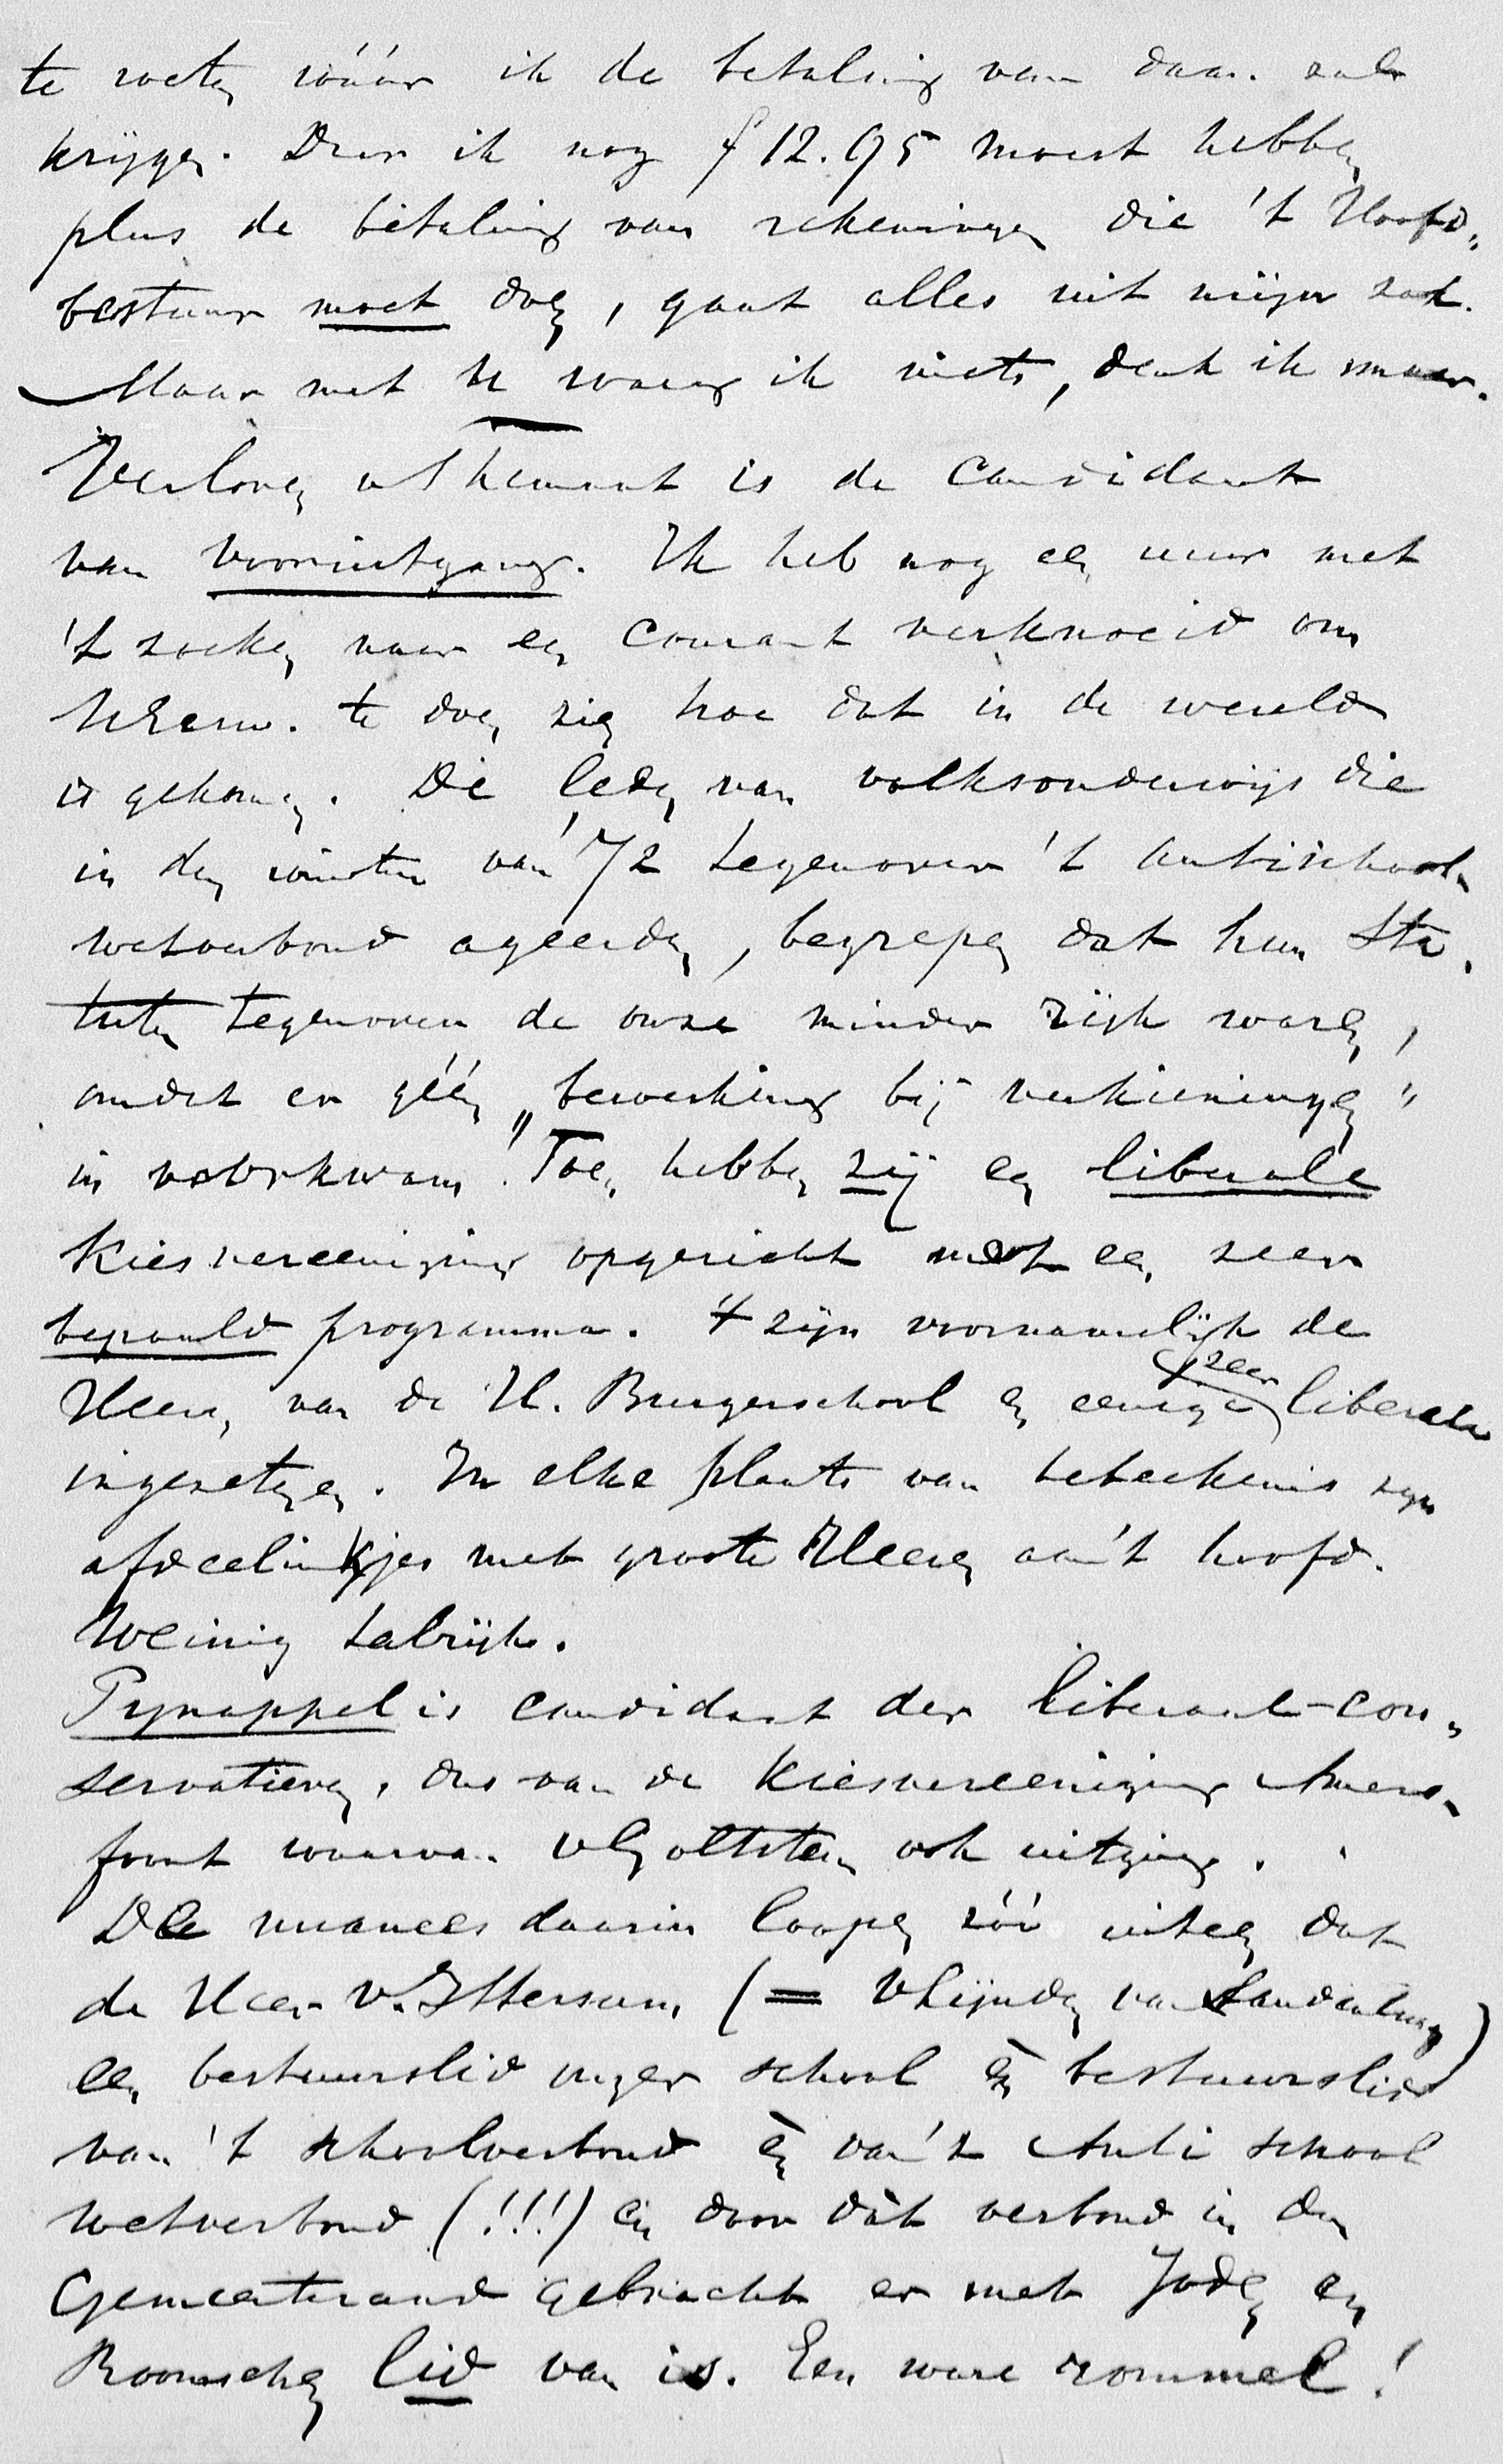 te weten wáár ik de betaling van daan zal
krijgen. Daar ik nog f 12.95 moest hebben
plus de betaling van rekeningen die 't Hoofd-
bestuur moet doen, gaat alles uit mijn zak.
Maar met u waag ik niets, denk ik maar.
Verloren is de candidaat
van vooruitgang. Ik heb nog een uur met
't zoeken naar een Courant verknoeid om
UEerw. te doen zien hoe dat in de wereld
is gekomen. De leden van volksonderwijs die
in den winter van '72 tegenover 't Antischool-
wetverbond ageerden, begrepen dat hun Sta-
tuten tegenover de onze minder rijk waren,
omdat er géén „bewerking bij verkiezingen"
in voorkwam! Toen hebben zij een liberale
Kiesvereeniging opgericht met een zeer
bepaald programma. 't zijn voornamelijk de
Heeren van de H. Burgerschool en eenige zeer liberale
ingezetenen. In elke plaats van beteekenis zijn
afdeelingjes met groote Heeren aan 't hoofd.
Weinig talrijk.
Pynappel is candidaat der liberaal-con-
servatieven, dus van de Kiesvereeniging Amers-
foort waarvan ook uitging.
De nuances daarin loopen zóó uiteen dat
de Heer v. Ittersum (= Lijnden van Sandenburg)
een bestuurslid onzer school èn bestuurslid
van 't schoolverbond èn van 't Anti school
wetverbond (!!!) en door dàt verbond in den
Gemeenteraad gebracht er met Joden en
Roomschen lid van is. Een ware rommel!